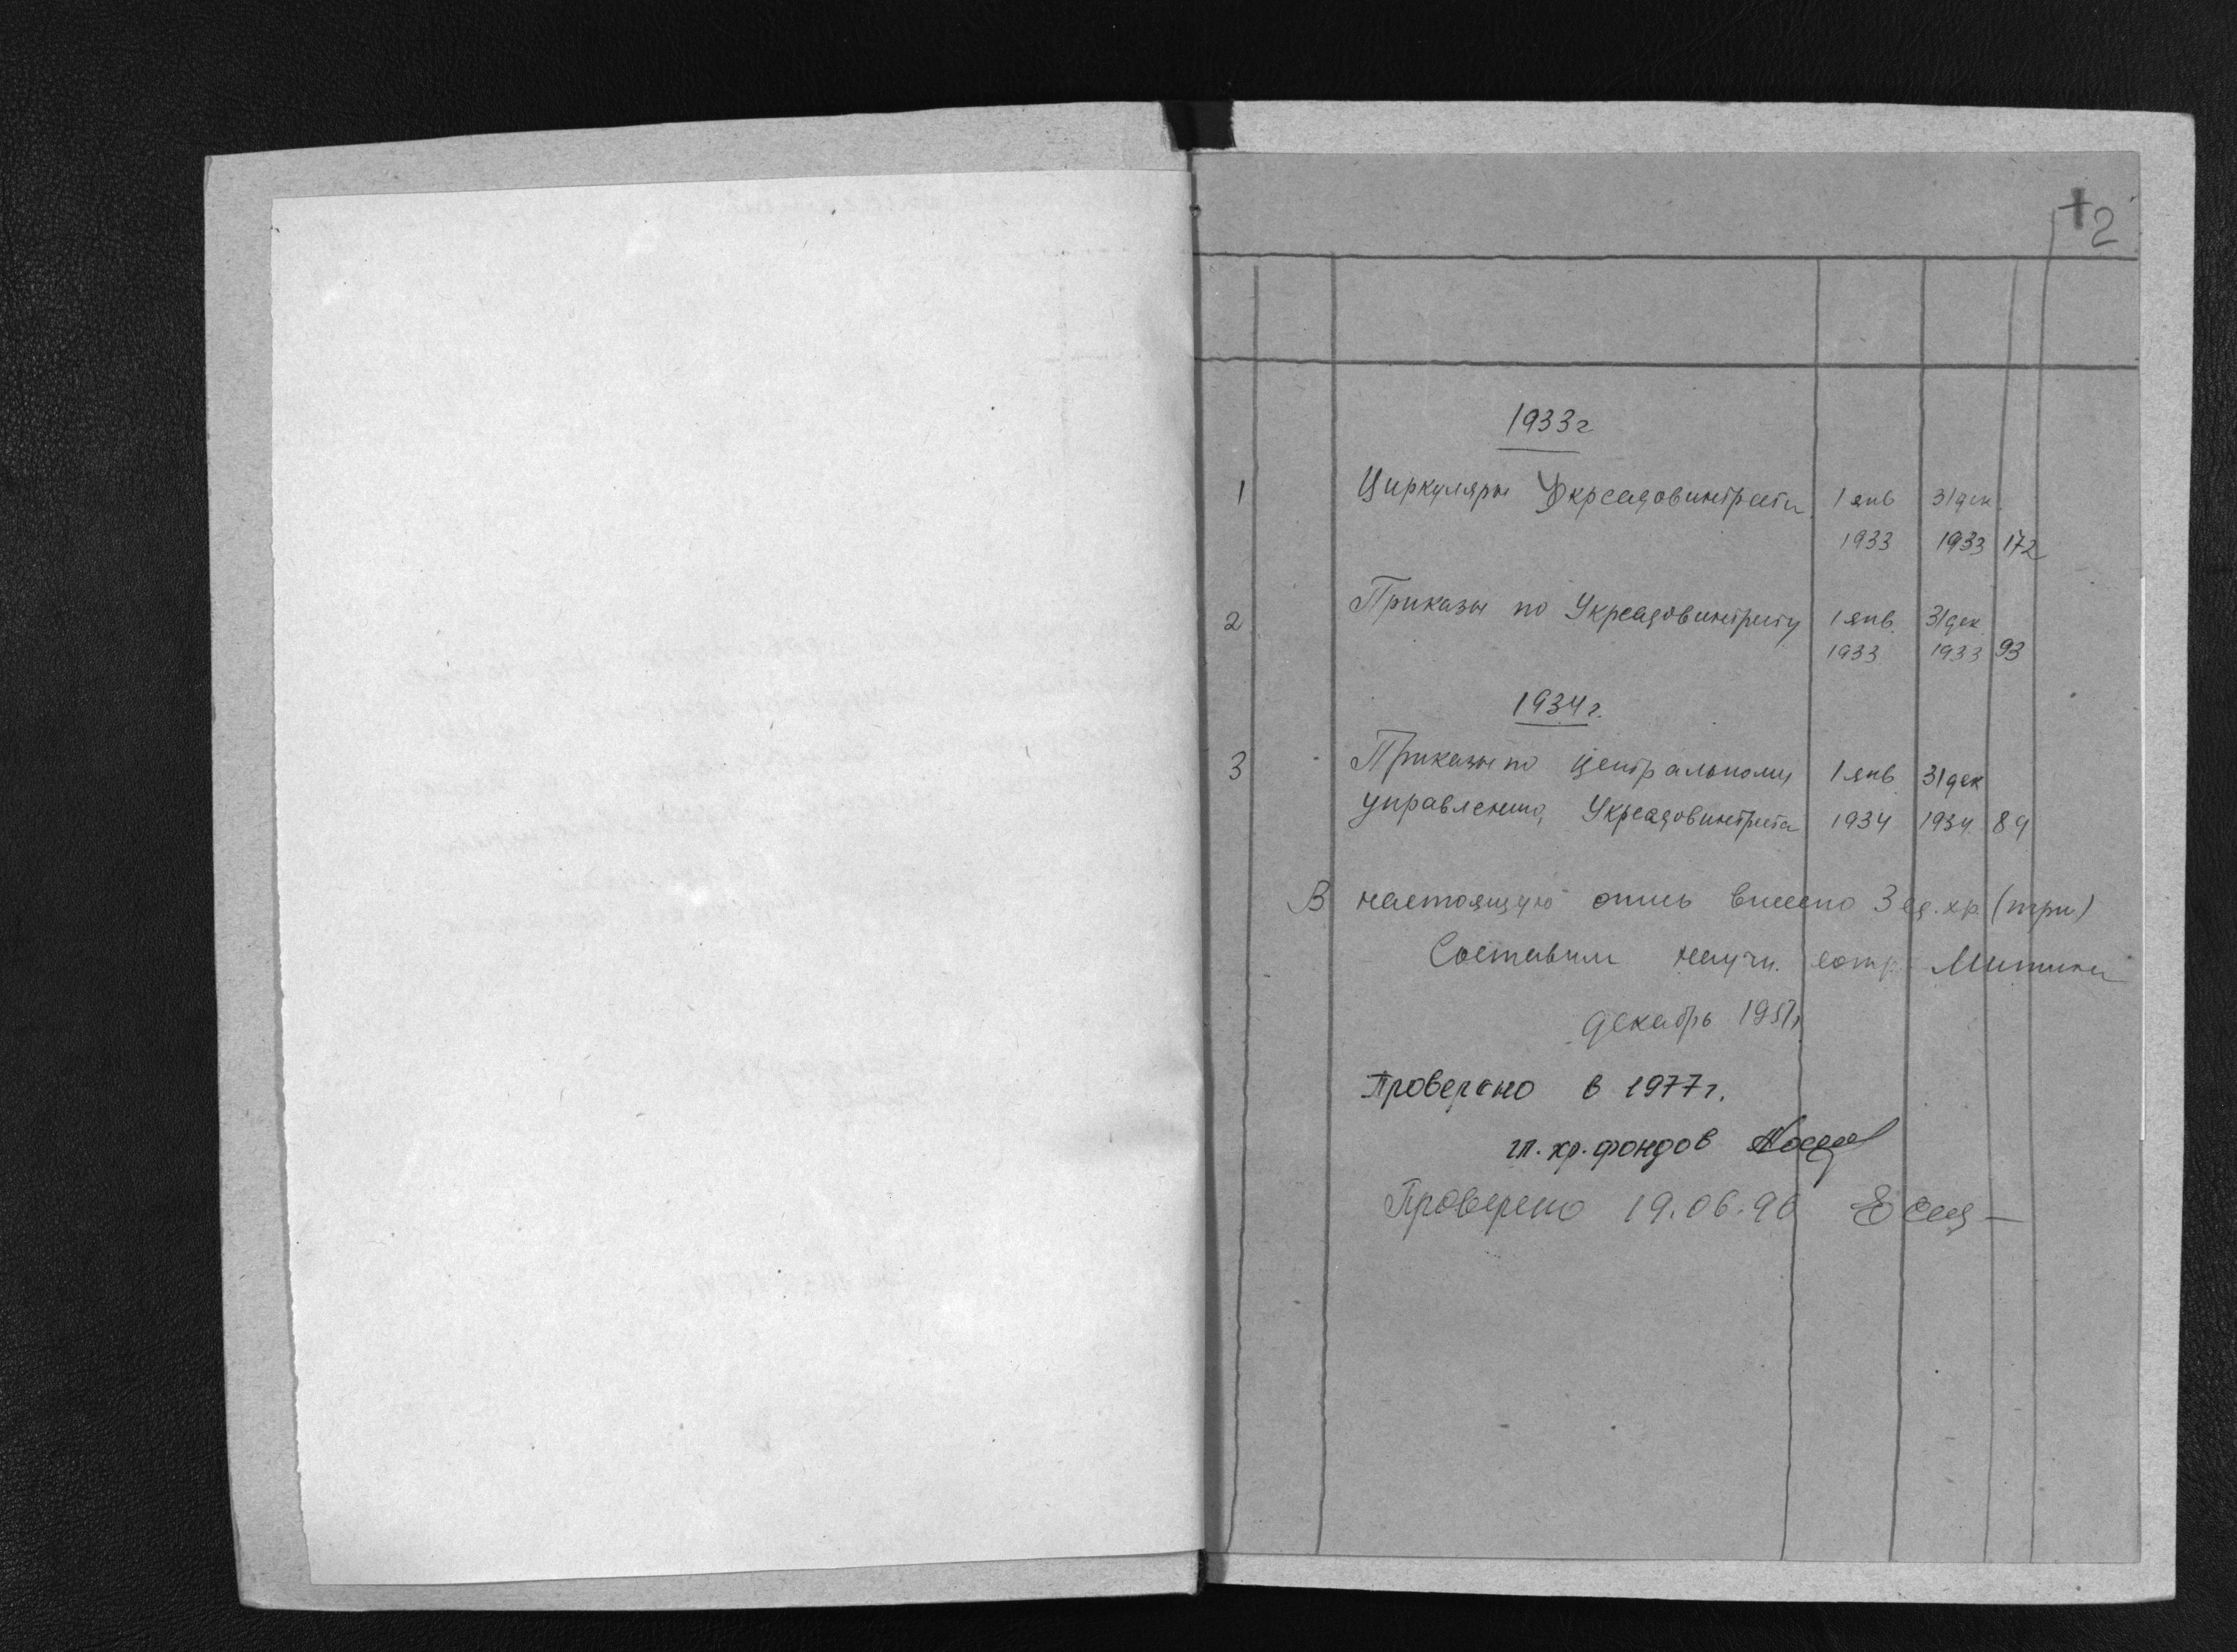 2
1933г
1 Циркуляры Укрсадовинтреста 1 янв 31 дек.
1933 1933 172
2 Приказы по Укрсадовинтресту 1 янв. 31 дек.
1933 1933 93
1934 г.
3 Приказы по Центральному 1 янв. 31 дек
управлению Укрсадовинтреста 1934 1934 89
В настоящую опись внесено 3 ед. хр. (три)
Составил научн. сотр.
декабрь
Проверено в 1977 г.
гл. хр. фондов
Проверено 19.06.90